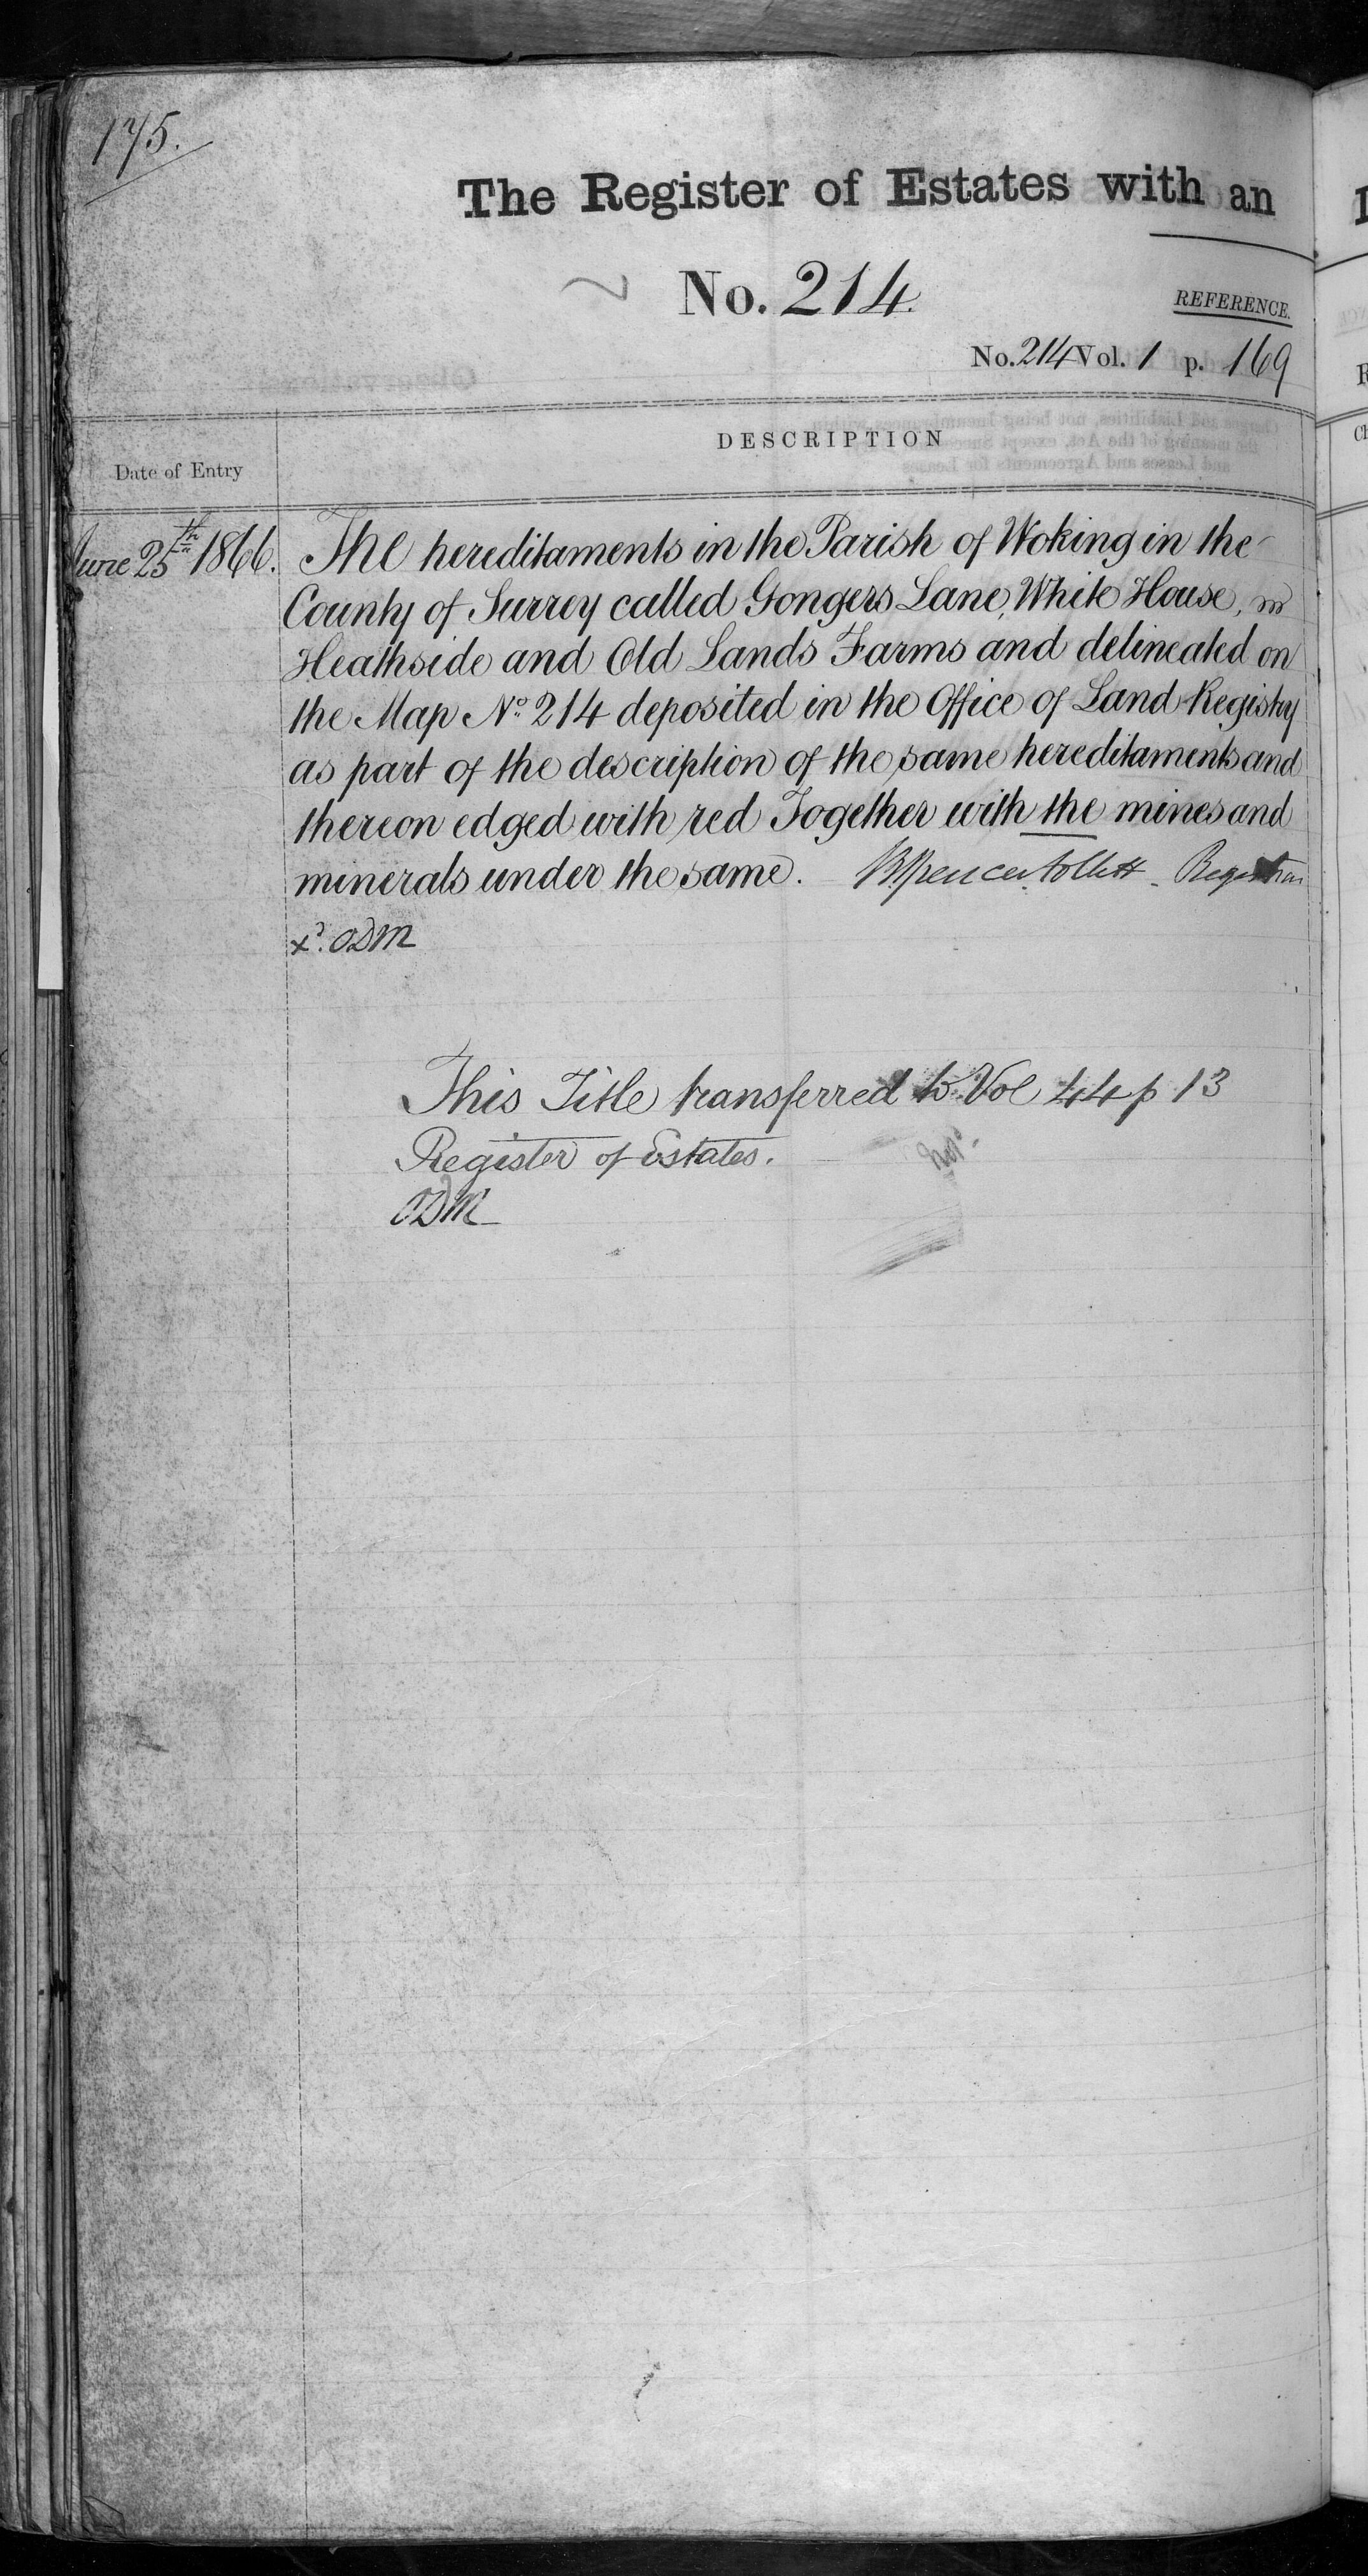 175.
The Register of Estates with an
No. 214.
REFERENCE.
No. 214 Vol. 1 p. 169
DESCRIPTION
Date of Entry
June 25th 1866.
The hereditaments in the Parish of Woking in the
County of Surrey called Gongers Lane, White House,
Heathside and Old Lands Farms and delineated on
the Map No. 214 deposited in the Office of Land Registry
as part of the description of the same hereditaments and
thereon edged with red Together with the mines and
minerals under the same. Spencer Follett Registrar
xd. ODM
This Title transferred to Vol 44 p 13
Register of Estates.
ODM